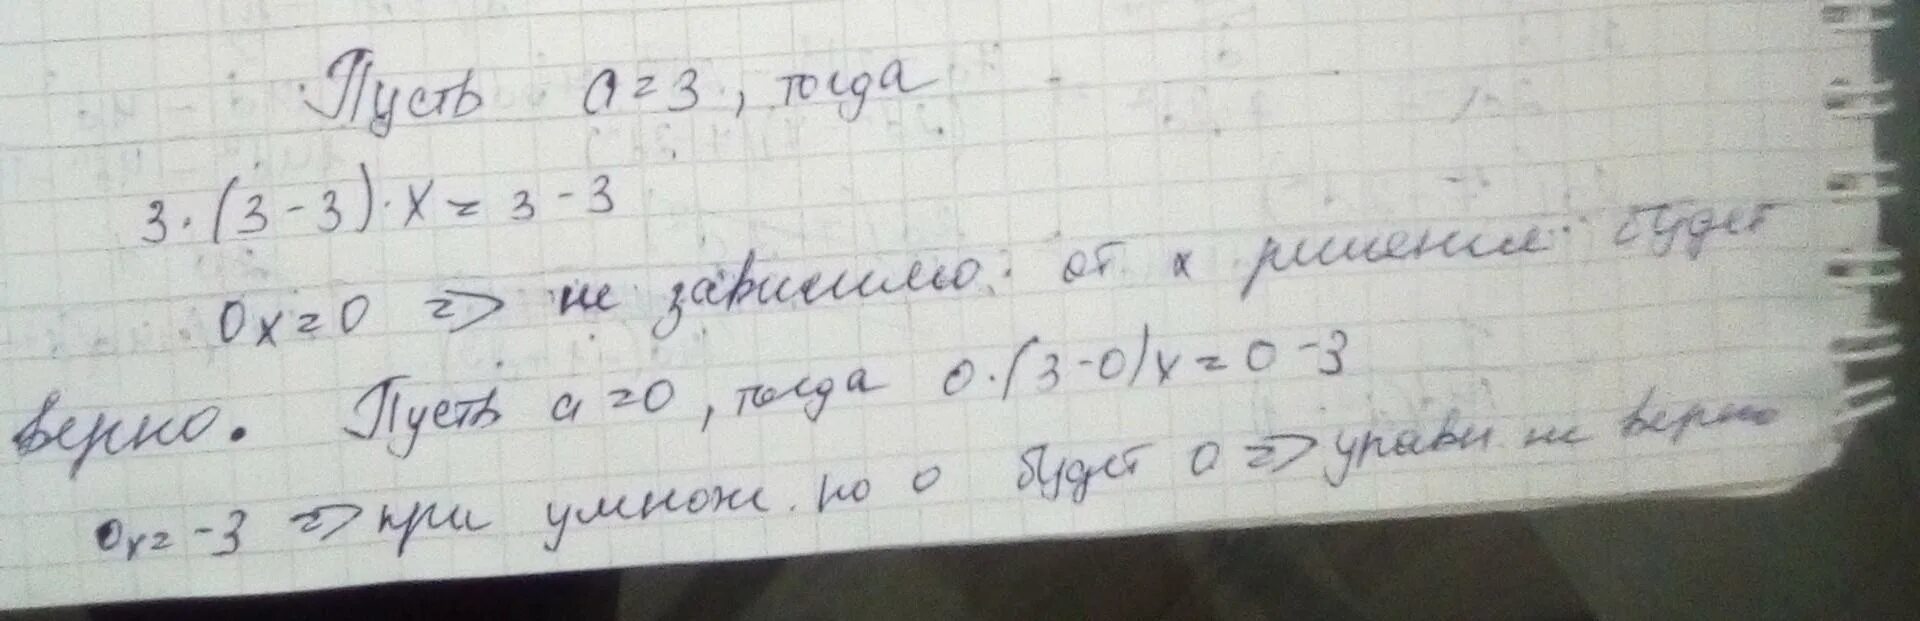 Пусть a=3, тогда
3·(3-3)·x=3-3
0x=0 => не зависимо от x решения будет
верно. Пусть a=0, тогда 0·(3-0)x=0-3
0x=-3 => при умнож. на 0 будет 0 => уравн. не верно